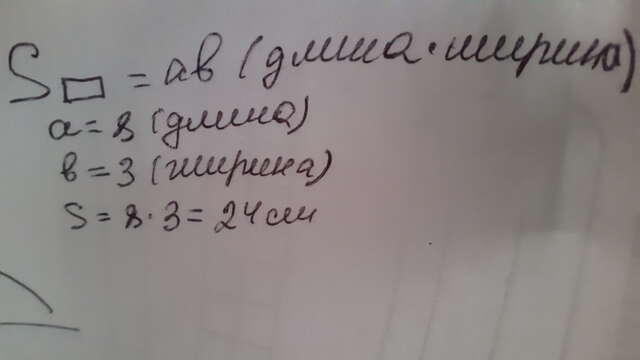 S▭ = ав (длина · ширина)
а = 8 (длина)
в = 3 (ширина)
S = 8 · 3 = 24 см